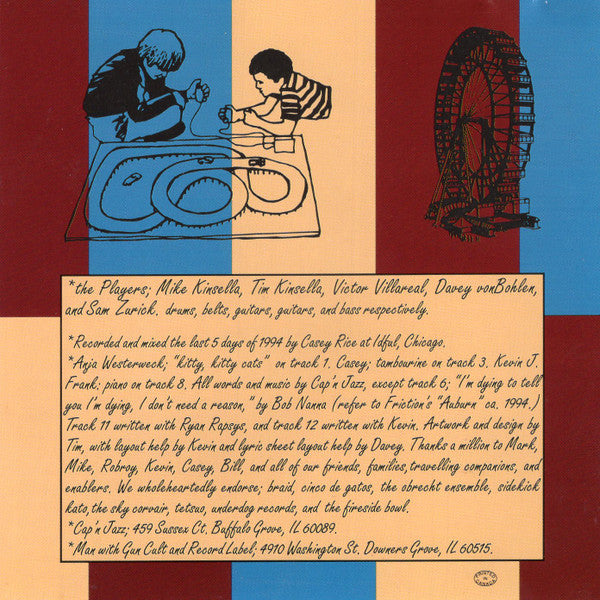 *the Players; Mike Kinsella, Tim Kinsella, Victor Villareal, Davey vonBohlen,
and Sam Zurick. drums, belts, guitars, guitars, and bass respectively.
*Recorded and mixed the last 5 days of 1994 by Casey Rice at Idful, Chicago.
*Anja Westerweck; "kitty, kitty cats" on track 1. Casey; tambourine on track 3. Kevin J.
Frank: piano on track 8. All words and music by Cap'n Jazz, except track 6; "I'm dying to tell
you I'm dying, I don't need a reason," by Bob Nanna (refer to Friction's "Auburn" ca. 1994.)
Track 11 written with Ryan Rapsys, and track 12 written with Kevin. Artwork and design by
Tim, with layout help by Kevin and lyric sheet layout help by Davey. Thanks a million to Mark,
Mike, Robroy, Kevin, Casey, Bill, and all of our friends, families,travelling companions, and
enablers. We wholeheartedly endorse; braid, cinco de gatos, the obrecht ensemble, sidekick
kato,the sky corvair, tetsuo, underdog records, and the fireside bowl.
*Cap'n Jazz; 459 Sussex Ct. Buffalo Grove, IL 60089.
*Man with Gun Cult and Record Label; 4910 Washington St. Downers Grove, IL 60515.
PRINTED
IN
CANADA